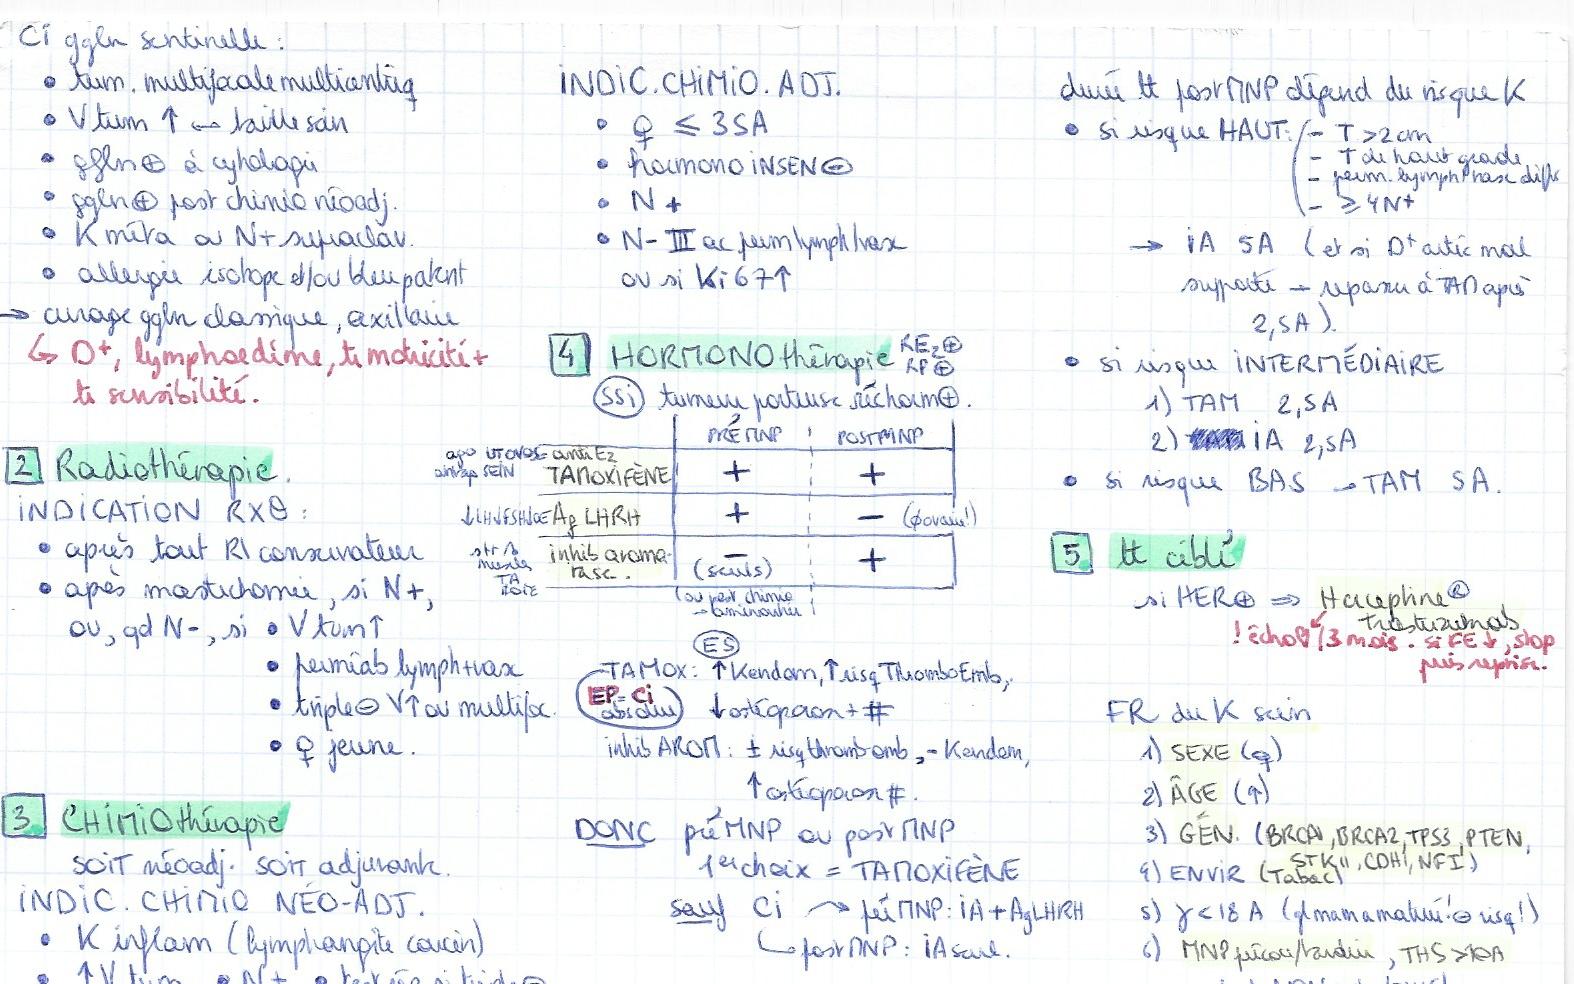 Ci ggln sentinelle :
• tum. multifocale multicentriq
• V tum ↑ ↔ taille sein
• ggln ⊕ à cytologie
• ggln ⊕ post chimio néoadj.
• K méta ou N+ supraclav.
• allergie isotope et/ou bleu patent
→ curage ggln classique, axillaire
↳ D+, lymphoedème, tb motricité +
tb sensibilité.
2 Radiothérapie.
INDICATION RXθ :
• après tout R/ conservateur
• après mastectomie, si N+,
ou, qd N-, si • V tum ↑
• perméab lymph + vax
• triple ⊖ V↑ ou multifoc.
• ♀ jeune.
3 CHIMIOthérapie
SOIT néoadj. SOIT adjuvante.
INDIC. CHIMIO NÉO-ADJ.
• K inflam (lymphangite carcin)
• ↑ V tum • N+
INDIC. CHIMIO. ADJ.
• ♀ ≤ 35A
• hormono INSEN ⊖
• N +
• N- III ac perm lymph/vax
ou si Ki 67 ↑
4 HORMONOthérapie RE2 ⊕
RP ⊕
SSi tumeur porteuse réc horm ⊕.
PRÉMNP POSTMNP
ago UT OVOS antiE2
antag SEIN TAMOXIFÈNE + +
↓LH↓FSH↓OE Ag LHRH + - (∅ ovaire!)
inhib aroma-
tase. - (seuls) +
(ou post chimio
aménorrhée
ES
TAMOX : ↑ Kendom, ↑ risq ThromboEmb,
EP = Ci
absolue ↓ ostéoporose + #
inhib AROM : ± risq thromb emb, - Kendom,
↑ ostéoporose #.
DONC pré MNP ou post MNP
1er choix = TAMOXIFÈNE
sauf Ci → pré MNP : iA + Ag LHRH
↳ post MNP : iA seul.
durée tt post MNP dépend du risque K
• si risque HAUT : - T > 2 cm
- T de haut grade
- perm. lymph vasc diffs
- ≥ 4N+
→ iA 5A (et si D+ artic mal
supporté → repasser à TAM après
2,5A).
• si risque INTERMÉDIAIRE
1) TAM 2,5A
2) iA 2,5A
• si risque BAS → TAM 5A.
5 tt ciblé
si HER ⊕ ⇒ Herceptine®
trastuzumab
! écho ♡ /3 mois. si FE ↓, stop
puis reprise.
FR du K sein
1) SEXE (♀)
2) ÂGE (↑)
3) GÉN. (BRCA1, BRCA2, TP53, PTEN,
STK11, CDH1, NF1)
4) ENVIR (Tabac)
5) γ < 18 A (gl mam mature ! ⊖ risq !)
6) MNP précoc/tardive, THS > 10A